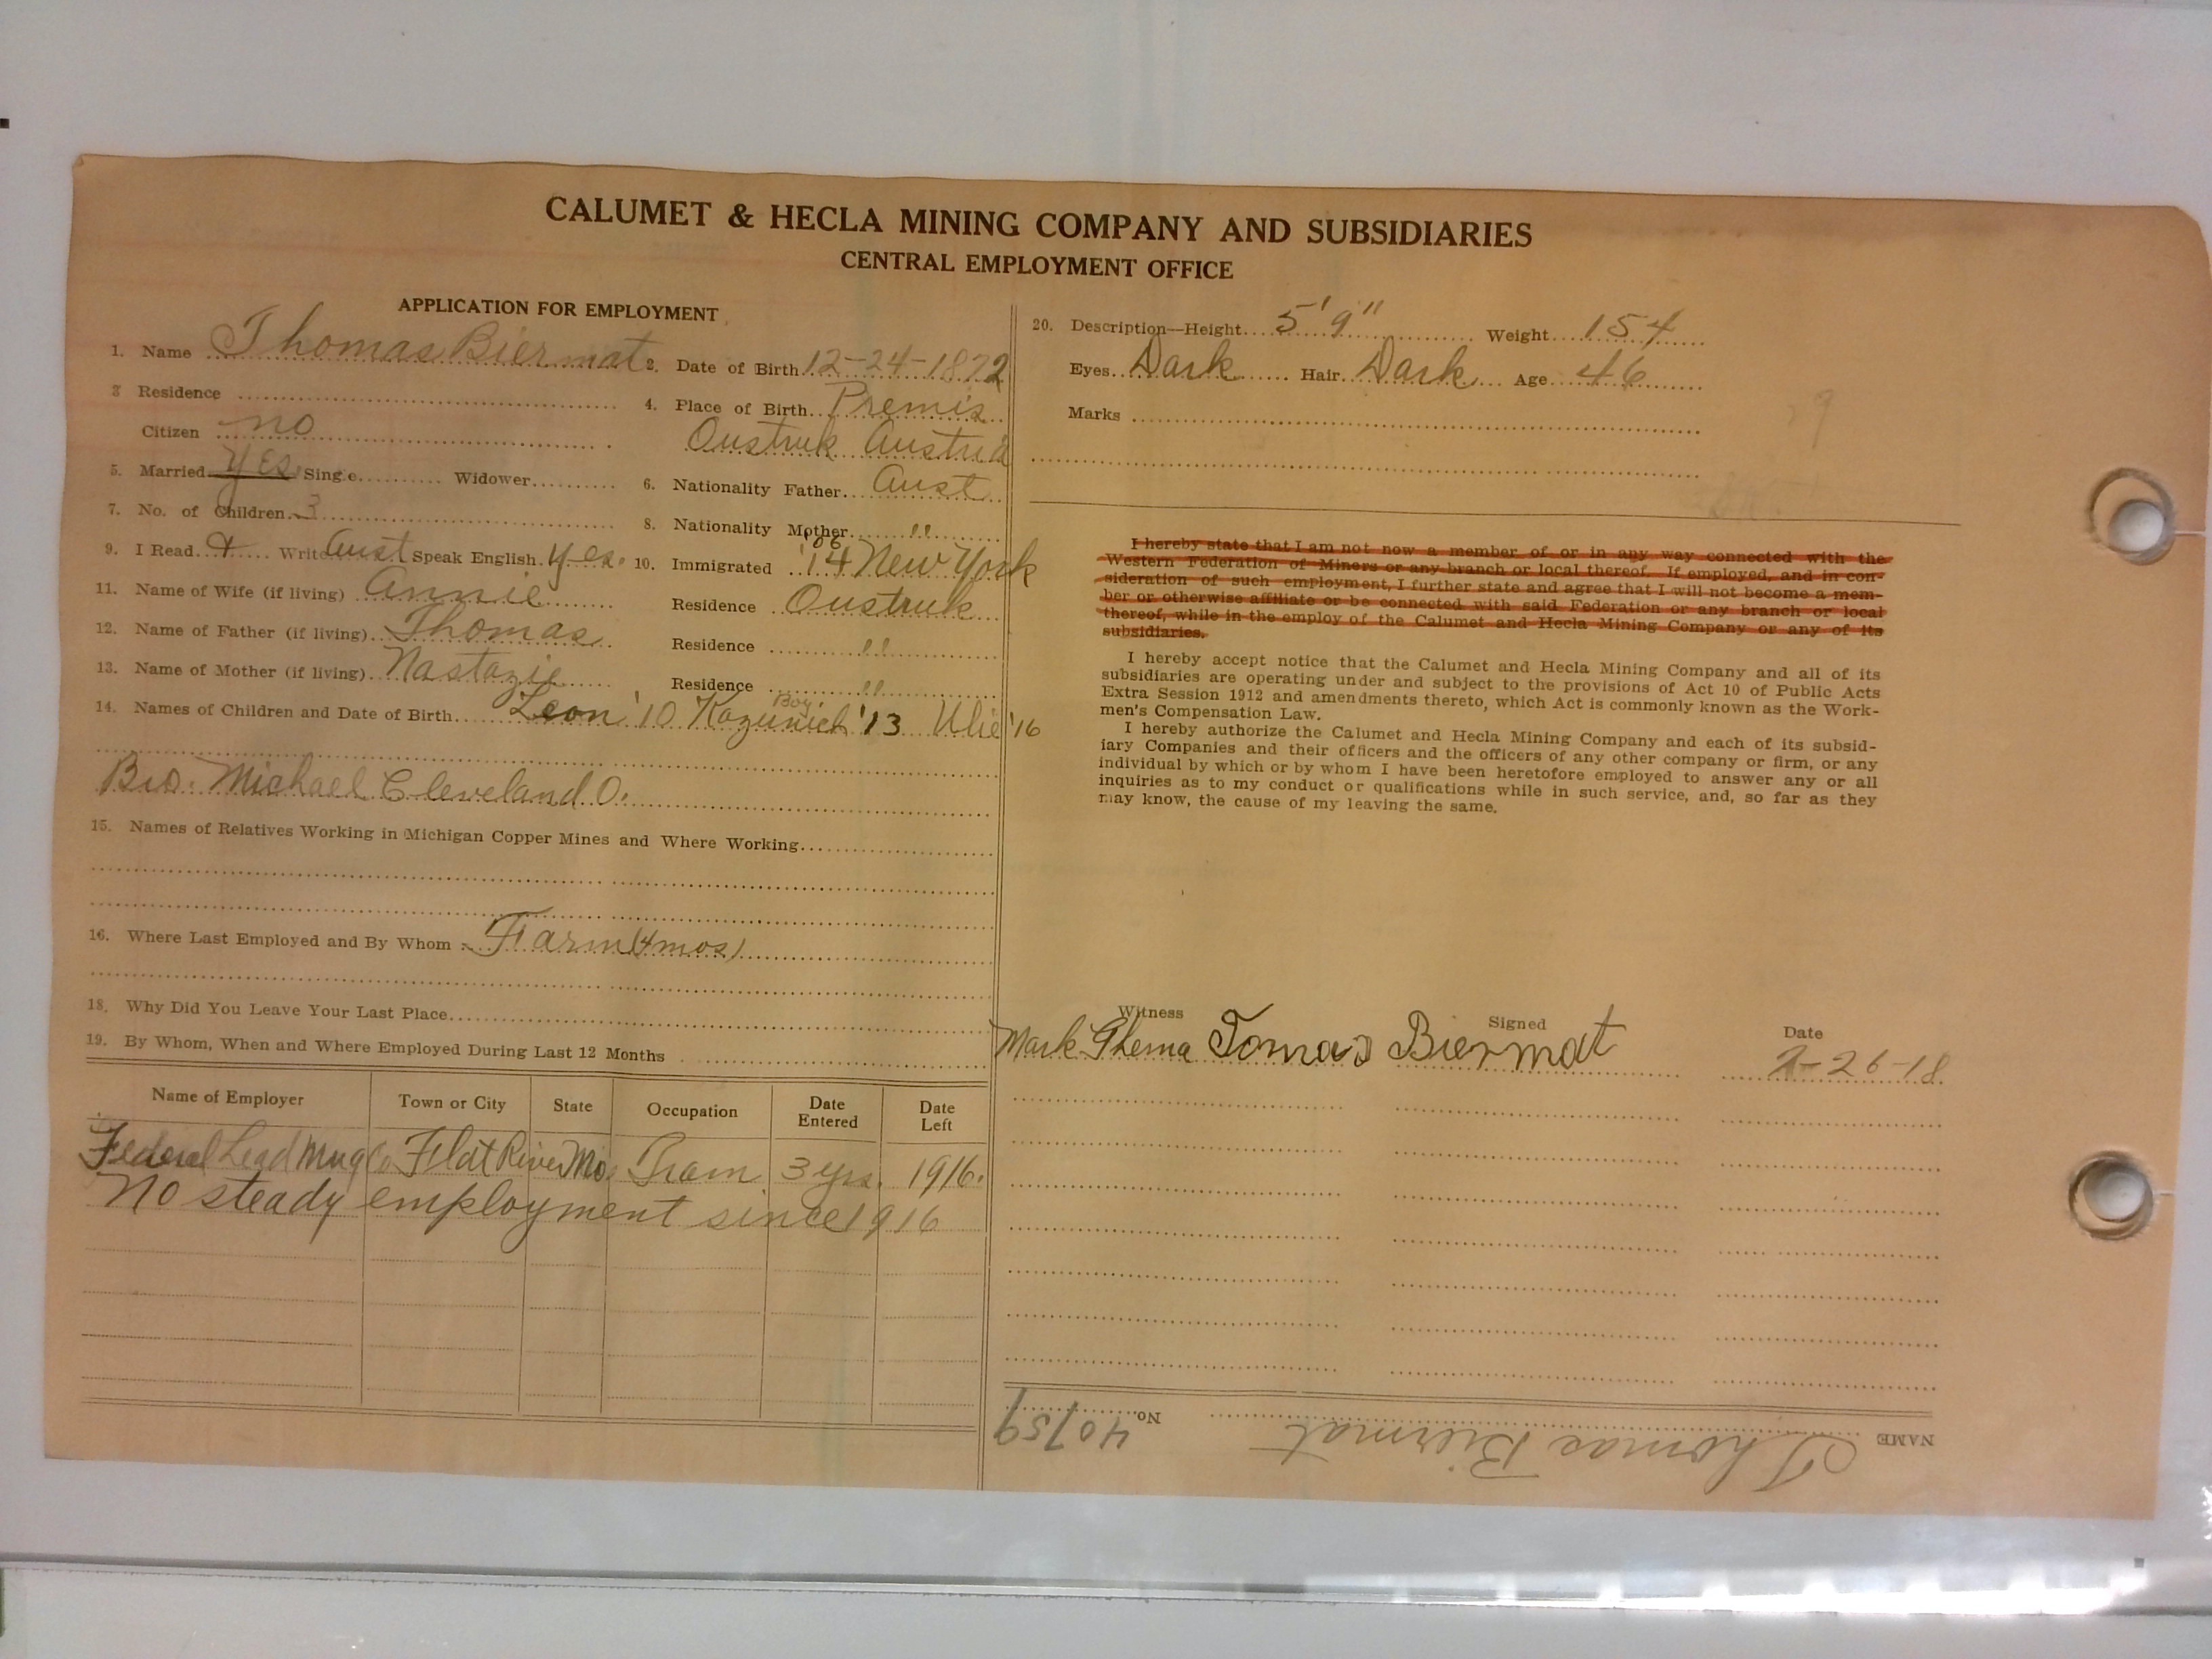 CALUMET & HECLA MINING COMPANY AND SUBSIDIARIES
CENTRAL EMPLOYMENT OFFICE
APPLICATION FOR EMPLOYMENT
1. Name Thomas Biermat 2. Date of Birth 12-24-1872
3 Residence 4. Place of Birth Premis
Citizen no Oustruk Austria
5. Married yes Single Widower 6. Nationality Father Aust
7. No. of Children 3 8. Nationality Mother "
9. I Read + Write Aust Speak English yes. 10. Immigrated '14 New York
11. Name of Wife (if living) Annie Residence Oustruk
12. Name of Father (if living) Thomas Residence "
13. Name of Mother (if living) Nastazie Residence "
Boy
14. Names of Children and Date of Birth Leon '10 Kazunich '13 Ulie '16
Bro. Michael Cleveland O.
15. Names of Relatives Working in Michigan Copper Mines and Where Working
16. Where Last Employed and By Whom Farm (4 mos)
18. Why Did You Leave Your Last Place
19. By Whom, When and Where Employed During Last 12 Months
Name of Employer Town or City State Occupation Date Entered Date Left
Federal Lead Mng Co Flat River Mo. Tram 3 yrs. 1916.
No steady employment since 1916
20. Description—Height 5' 9" Weight 154
Eyes Dark Hair Dark Age 46
Marks
I hereby state that I am not now a member of or in any way connected with the
Western Federation of Miners or any branch or local thereof. If employed, and in con-
sideration of such employment, I further state and agree that I will not become a mem-
ber or otherwise affiliate or be connected with said Federation or any branch or local
thereof, while in the employ of the Calumet and Hecla Mining Company or any of its
subsidiaries.
I hereby accept notice that the Calumet and Hecla Mining Company and all of its
subsidiaries are operating under and subject to the provisions of Act 10 of Public Acts
Extra Session 1912 and amendments thereto, which Act is commonly known as the Work-
men's Compensation Law.
I hereby authorize the Calumet and Hecla Mining Company and each of its subsid-
iary Companies and their officers and the officers of any other company or firm, or any
individual by which or by whom I have been heretofore employed to answer any or all
inquiries as to my conduct or qualifications while in such service, and, so far as they
may know, the cause of my leaving the same.
Witness Signed Date
Mark Ghema Tomas Biermat 7-26-18
NAME Thomas Biermat No. 40759